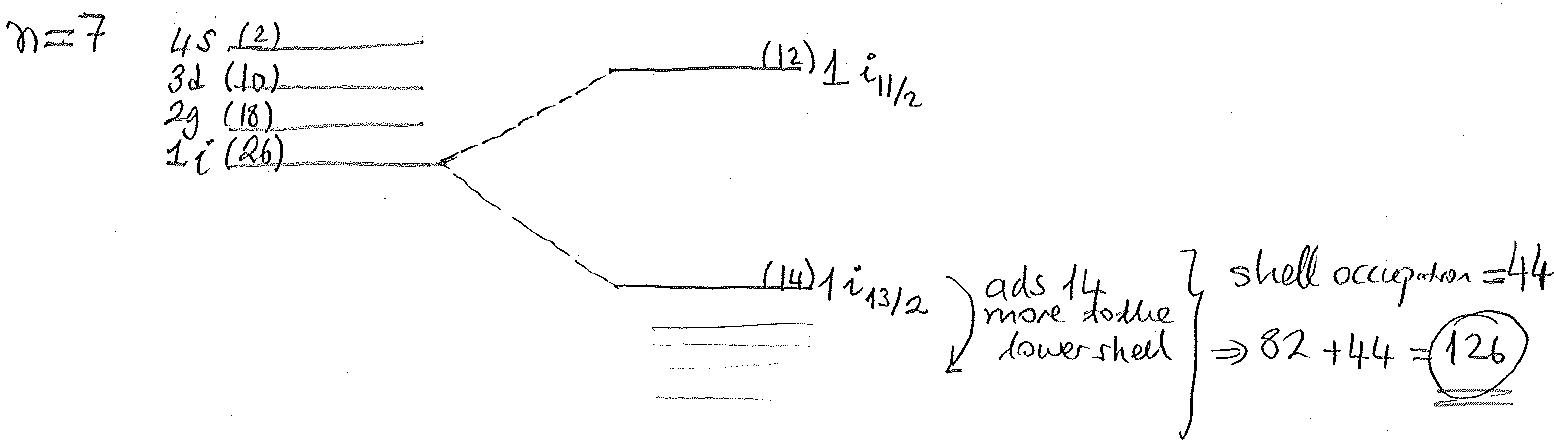 n=7
4s (2)
3d (10)
2g (18)
1i (26)
(12) 1 i 11/2
(14) 1 i 13/2
ads 14
more to the
lower shell
shell occupation = 44
⇒ 82 + 44 = 126